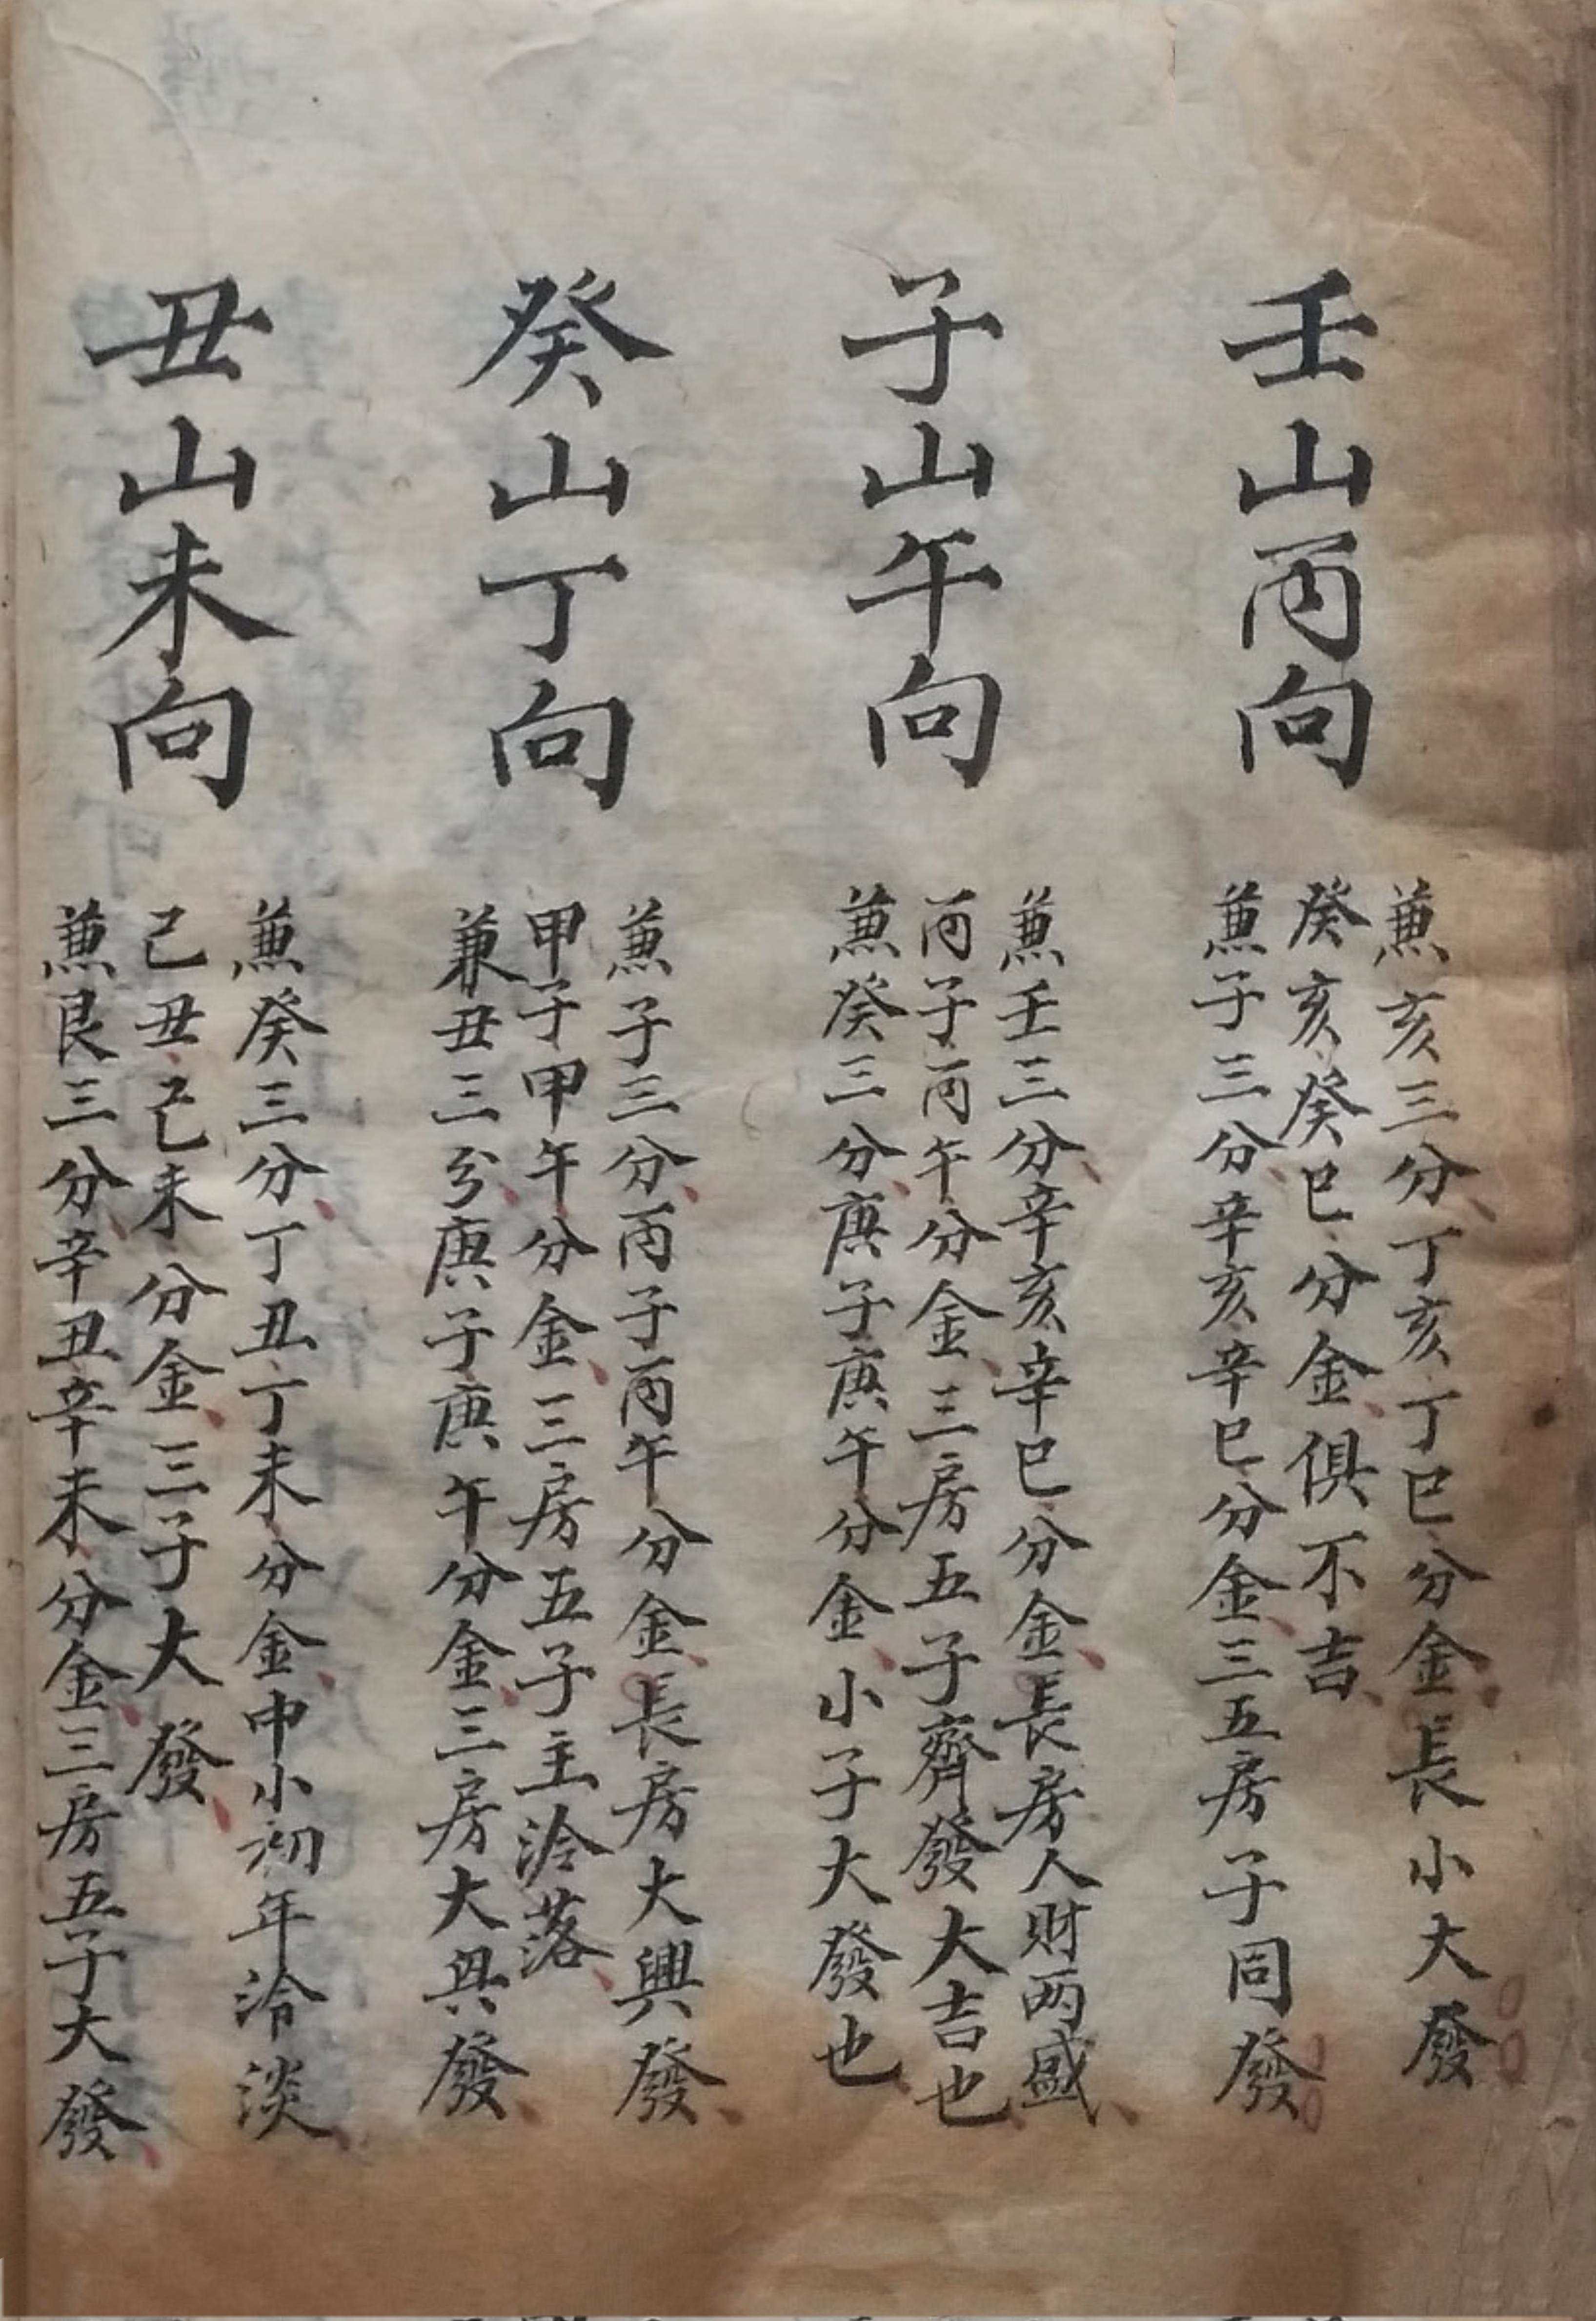 壬山丙向
兼亥三分丁亥丁巳分金長小大發
癸亥癸巳分金俱不吉
兼子三分辛亥辛巳分金三五房子同發
子山午向
兼壬三分辛亥辛巳分金長房人財两盛
丙子丙午分金三房五子齊發大吉也
兼癸三分庚子庚午分金小子大發也
癸山丁向
兼子三分丙子丙午分金長房大興發
甲子甲午分金三房五子主冷落
兼丑三分庚子庚午分金三房大興發
丑山未向
兼癸三分丁丑丁未分金中小初年冷淡
己丑己未分金三子大發
兼艮三分辛丑辛未分金三房五子大發